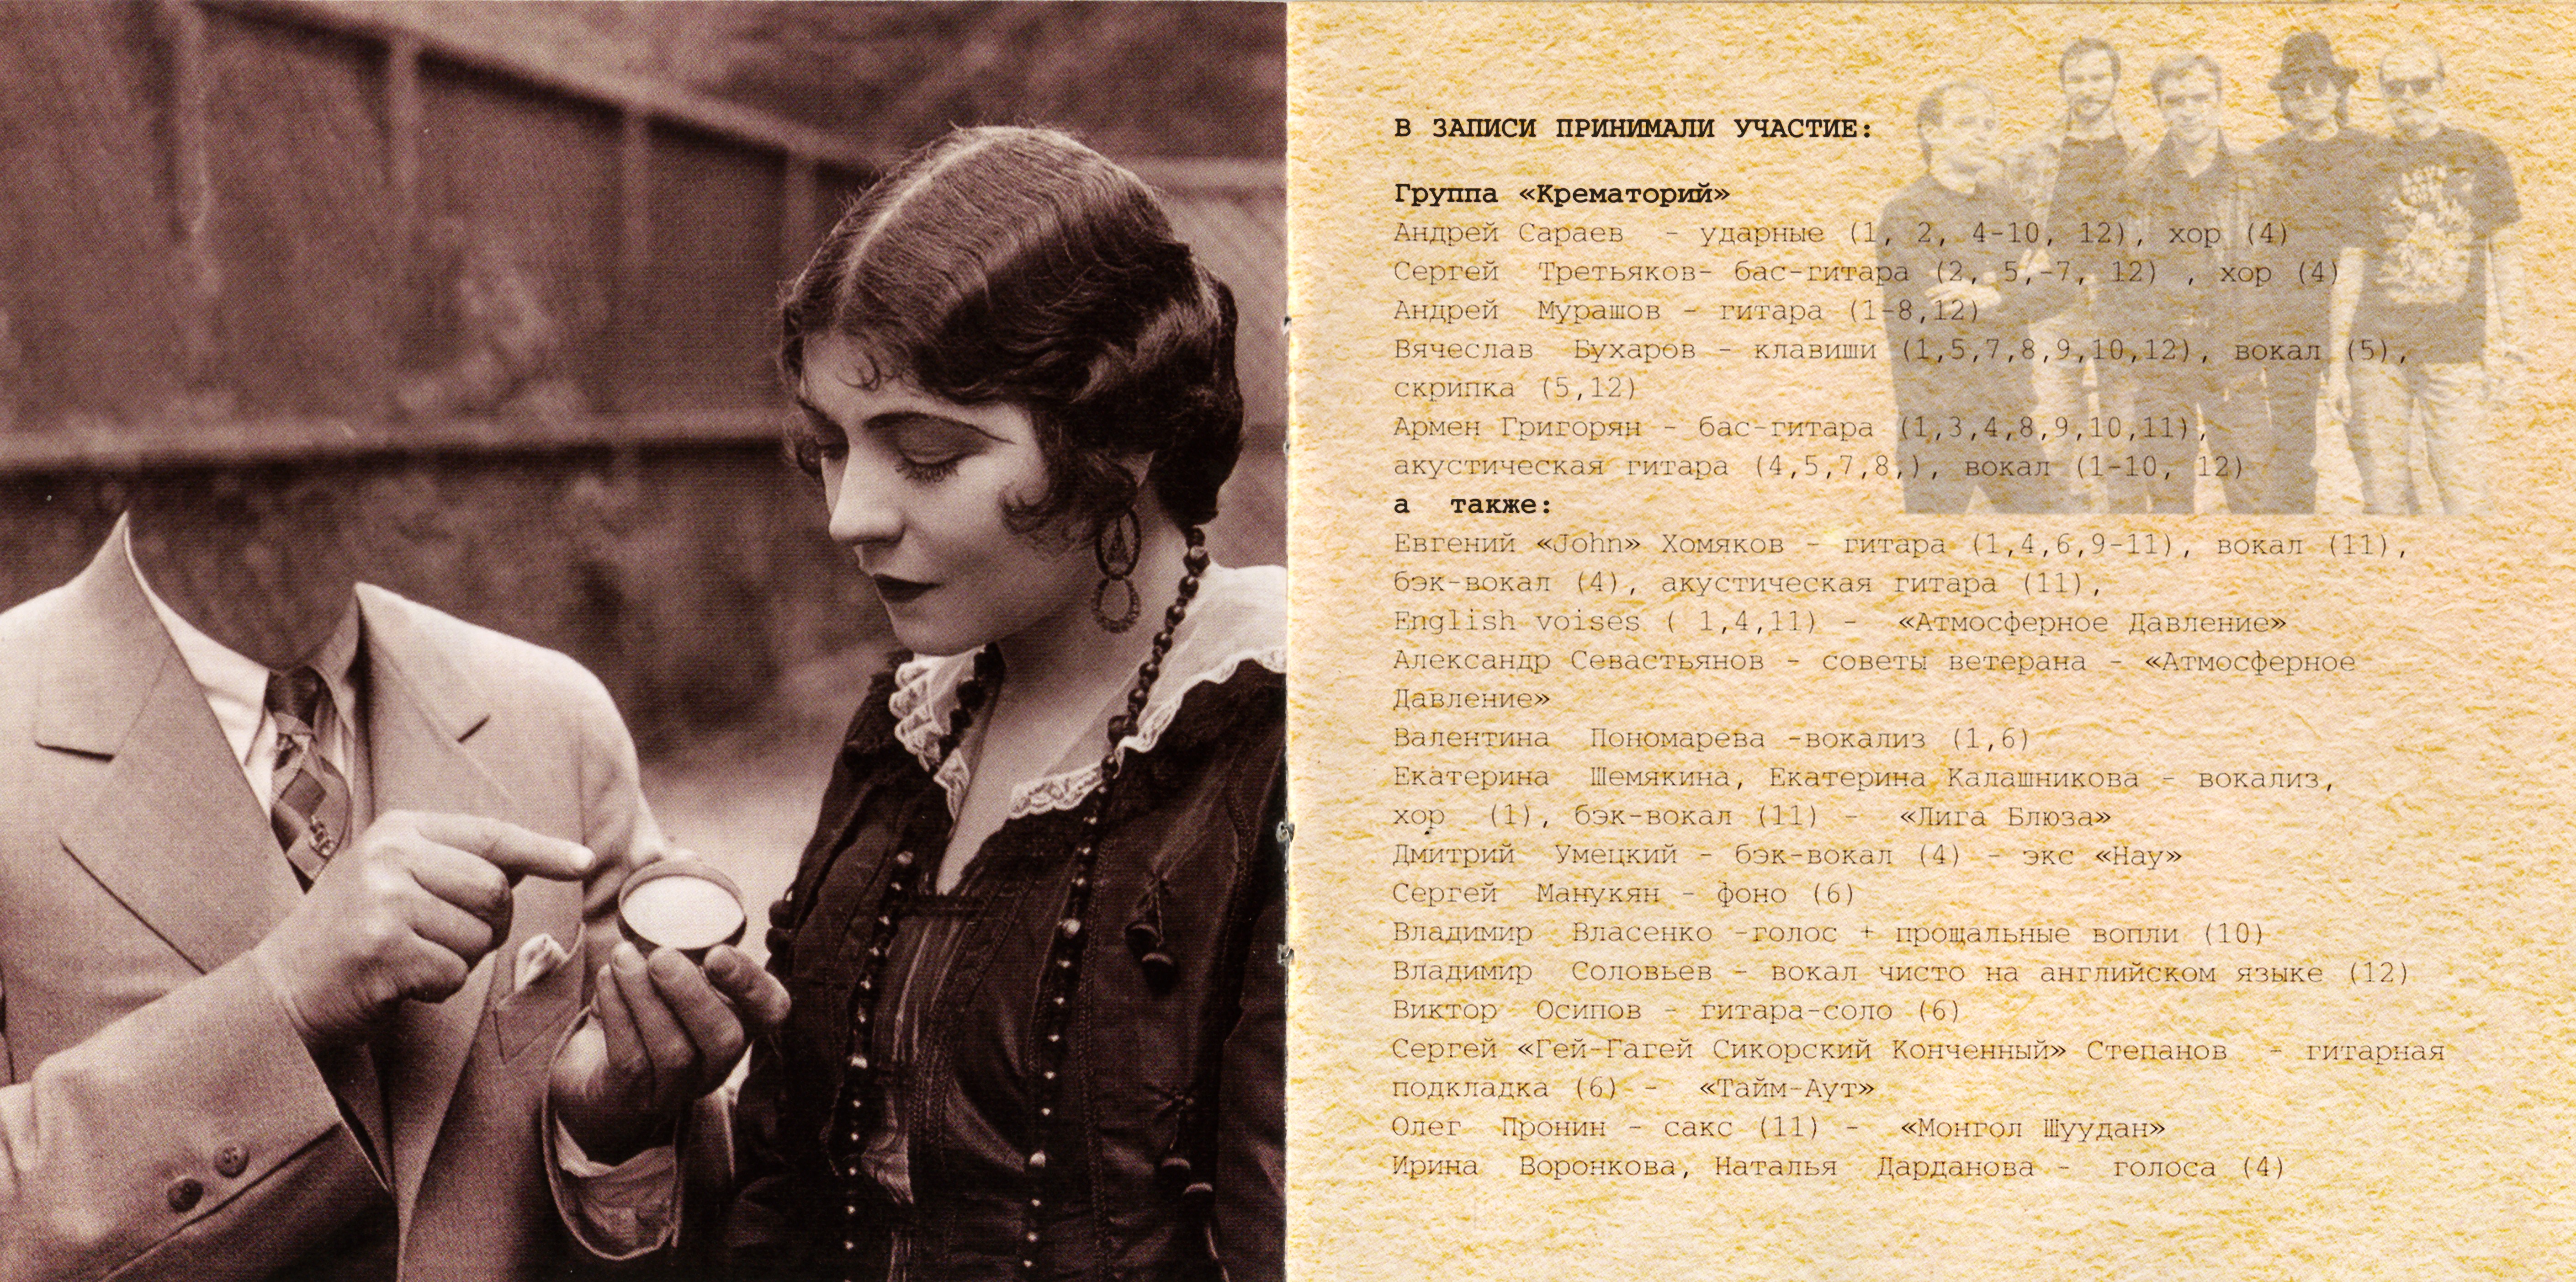 В ЗАПИСИ ПРИНИМАЛИ УЧАСТИЕ:
Группа «Крематорий»
Андрей Сараев - ударные (1, 2, 4-10, 12), хор (4)
Сергей Третьяков- бас-гитара (2, 5,-7, 12) , хор (4)
Андрей Мурашов - гитара (1-8,12)
Вячеслав Бухаров - клавиши (1,5,7,8,9,10,12), вокал (5),
скрипка (5,12)
Армен Григорян - бас-гитара (1,3,4,8,9,10,11),
акустическая гитара (4,5,7,8,), вокал (1-10, 12)
а также:
Евгений «John» Хомяков - гитара (1,4,6,9-11), вокал (11),
бэк-вокал (4), акустическая гитара (11),
English voises ( 1,4,11) - «Атмосферное Давление»
Александр Севастьянов - советы ветерана - «Атмосферное
Давление»
Валентина Пономарева -вокализ (1,6)
Екатерина Шемякина, Екатерина Калашникова - вокализ,
хор (1), бэк-вокал (11) - «Лига Блюза»
Дмитрий Умецкий - бэк-вокал (4) - экс «Нау»
Сергей Манукян - фоно (6)
Владимир Власенко -голос + прощальные вопли (10)
Владимир Соловьев - вокал чисто на английском языке (12)
Виктор Осипов - гитара-соло (6)
Сергей «Гей-Гагей Сикорский Конченный» Степанов - гитарная
подкладка (6) - «Тайм-Аут»
Олег Пронин - сакс (11) - «Монгол Шуудан»
Ирина Воронкова, Наталья Дарданова - голоса (4)